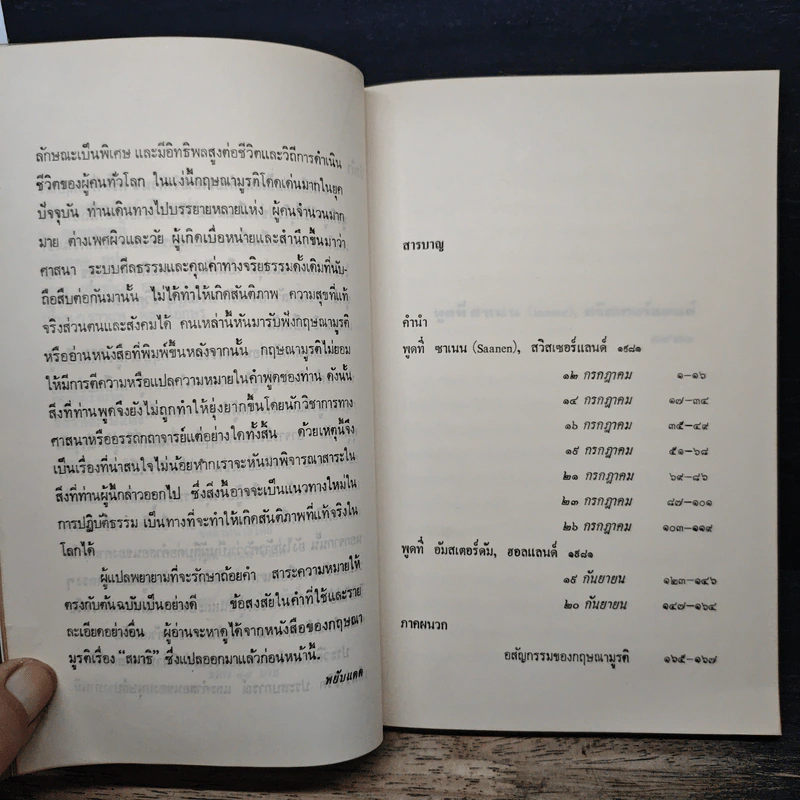 ลักษณะเป็นพิเศษ และมีอิทธิพลสูงต่อชีวิตและวิถีการดำเนิน
ชีวิตของผู้คนทั่วโลก ในแง่นี้กฤษณามูรติโดดเด่นมากในยุค
ปัจจุบัน ท่านเดินทางไปบรรยายหลายแห่ง ผู้คนจำนวนมาก
มาย ต่างเพศผิวและวัย ผู้เกิดเบื่อหน่ายและสำนึกขึ้นมาว่า
ศาสนา ระบบศีลธรรมและคุณค่าทางจริยธรรมดั้งเดิมที่นับ-
ถือสืบต่อกันมานั้น ไม่ได้ทำให้เกิดสันติภาพ ความสุขที่แท้
จริงส่วนตนและสังคมได้ คนเหล่านี้หันมารับฟังกฤษณามูรติ
หรืออ่านหนังสือที่พิมพ์ขึ้นหลังจากนั้น กฤษณามูรติไม่ยอม
ให้มีการตีความหรือแปลความหมายในคำพูดของท่าน ดังนั้น
สิ่งที่ท่านพูดจึงยังไม่ถูกทำให้ยุ่งยากขึ้นโดยนักวิชาการทาง
ศาสนาหรืออรรถกถาจารย์แต่อย่างใดทั้งสิ้น ด้วยเหตุนี้จึง
เป็นเรื่องที่น่าสนใจไม่น้อยหากเราจะหันมาพิจารณาสาระใน
สิ่งที่ท่านผู้นี้กล่าวออกไป ซึ่งสิ่งนี้อาจจะเป็นแนวทางใหม่ใน
การปฏิบัติธรรม เป็นทางที่จะทำให้เกิดสันติภาพที่แท้จริงใน
โลกได้
ผู้แปลพยายามที่จะรักษาถ้อยคำ สาระความหมายให้
ตรงกับต้นฉบับเป็นอย่างดี ข้อสงสัยในคำที่ใช้และราย
ละเอียดอย่างอื่น ผู้อ่านจะหาดูได้จากหนังสือของกฤษณา
มูรติเรื่อง “สมาธิ” ซึ่งแปลออกมาแล้วก่อนหน้านี้.
พยับแดด
สารบาญ
คำนำ
พูดที่ ซาเนน (Saanen), สวิสเซอร์แลนด์ ๑๙๘๑
๑๒ กรกฎาคม ๑-๑๖
๑๔ กรกฎาคม ๑๗-๓๔
๑๖ กรกฎาคม ๓๕-๔๙
๑๙ กรกฎาคม ๕๑-๖๘
๒๑ กรกฎาคม ๖๙-๘๖
๒๓ กรกฎาคม ๘๗-๑๐๑
๒๖ กรกฎาคม ๑๐๓-๑๑๙
พูดที่ อัมสเตอร์ดัม, ฮอลแลนด์ ๑๙๘๑
๑๙ กันยายน ๑๒๓-๑๔๖
๒๐ กันยายน ๑๔๗-๑๖๔
ภาคผนวก
อสัญกรรมของกฤษณามูรติ ๑๖๕-๑๖๗